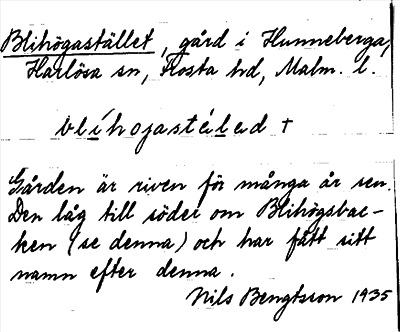 Blihögastället, gård i Hunneberga,
Harlösa sn, Frosta hd, Malm. l.
blíhogastélad +
Gården är riven för många år sen.
Den låg till söder om Blihögsbac-
ken (se denna) och har fått sitt
namn efter denna.
Nils Bengtsson 1935